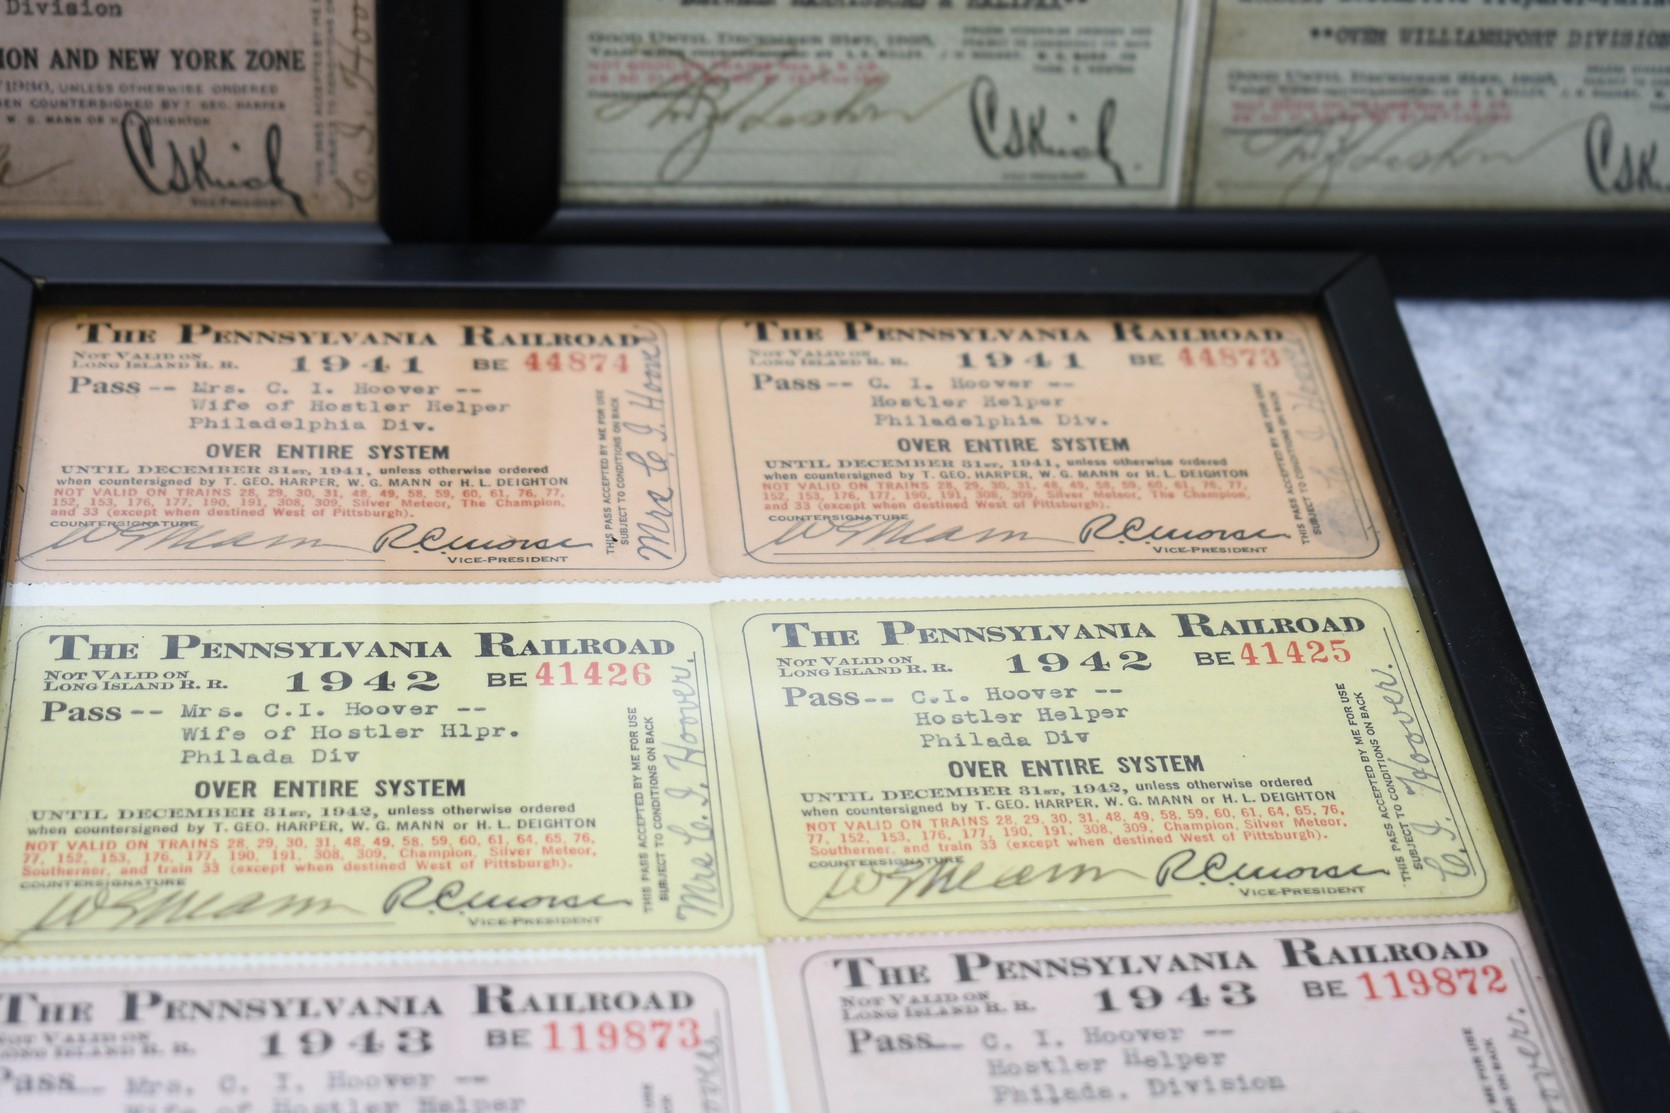 Division
ION AND NEW YORK ZONE
1930, UNLESS OTHERWISE ORDERED
EN COUNTERSIGNED BY T. GEO. HARPER
W. G. MANN OR H. L. DEIGHTON
VICE-PRESIDENT
GOOD UNTIL DECEMBER 31ST,
**OVER WILLIAMSPORT DIVISION
GOOD UNTIL DECEMBER 31ST,
THE PENNSYLVANIA RAILROAD
NOT VALID ON
LONG ISLAND R. R.
1941 BE 44874
Pass -- Mrs. C. I. Hoover --
Wife of Hostler Helper
Philadelphia Div.
OVER ENTIRE SYSTEM
UNTIL DECEMBER 31ST, 1941, unless otherwise ordered
when countersigned by T. GEO. HARPER, W. G. MANN or H. L. DEIGHTON
NOT VALID ON TRAINS 28, 29, 30, 31, 48, 49, 58, 59, 60, 61, 76, 77,
152, 153, 176, 177, 190, 191, 308, 309, Silver Meteor, The Champion,
and 33 (except when destined West of Pittsburgh).
COUNTERSIGNATURE
W G Mann
R.C. Morse
VICE-PRESIDENT
THIS PASS ACCEPTED BY ME FOR USE
SUBJECT TO CONDITIONS ON BACK
Mrs C. I. Hoover
THE PENNSYLVANIA RAILROAD
NOT VALID ON
LONG ISLAND R. R.
1941 BE 44873
Pass -- C. I. Hoover --
Hostler Helper
Philadelphia Div.
OVER ENTIRE SYSTEM
UNTIL DECEMBER 31ST, 1941, unless otherwise ordered
when countersigned by T. GEO. HARPER, W. G. MANN or H. L. DEIGHTON
NOT VALID ON TRAINS 28, 29, 30, 31, 48, 49, 58, 59, 60, 61, 76, 77,
152, 153, 176, 177, 190, 191, 308, 309, Silver Meteor, The Champion,
and 33 (except when destined West of Pittsburgh).
COUNTERSIGNATURE
W G Mann
R.C. Morse
VICE-PRESIDENT
THIS PASS ACCEPTED BY ME FOR USE
SUBJECT TO CONDITIONS ON BACK
THE PENNSYLVANIA RAILROAD
NOT VALID ON
LONG ISLAND R. R.
1942 BE 41426
Pass -- Mrs. C.I. Hoover --
Wife of Hostler Hlpr.
Philada Div
OVER ENTIRE SYSTEM
UNTIL DECEMBER 31ST, 1942, unless otherwise ordered
when countersigned by T. GEO. HARPER, W. G. MANN or H. L. DEIGHTON
NOT VALID ON TRAINS 28, 29, 30, 31, 48, 49, 58, 59, 60, 61, 64, 65, 76,
77, 152, 153, 176, 177, 190, 191, 308, 309, Champion, Silver Meteor,
Southerner, and train 33 (except when destined West of Pittsburgh).
COUNTERSIGNATURE
W G Mann
R.C. Morse
VICE-PRESIDENT
THIS PASS ACCEPTED BY ME FOR USE
SUBJECT TO CONDITIONS ON BACK
Mrs C. I. Hoover.
THE PENNSYLVANIA RAILROAD
NOT VALID ON
LONG ISLAND R. R.
1942 BE 41425
Pass -- C.I. Hoover --
Hostler Helper
Philada Div
OVER ENTIRE SYSTEM
UNTIL DECEMBER 31ST, 1942, unless otherwise ordered
when countersigned by T. GEO. HARPER, W. G. MANN or H. L. DEIGHTON
NOT VALID ON TRAINS 28, 29, 30, 31, 48, 49, 58, 59, 60, 61, 64, 65, 76,
77, 152, 153, 176, 177, 190, 191, 308, 309, Champion, Silver Meteor,
Southerner, and train 33 (except when destined West of Pittsburgh).
COUNTERSIGNATURE
W G Mann
R.C. Morse
VICE-PRESIDENT
THIS PASS ACCEPTED BY ME FOR USE
SUBJECT TO CONDITIONS ON BACK
C. I. Hoover.
THE PENNSYLVANIA RAILROAD
NOT VALID ON
LONG ISLAND R. R.
1943 BE 119873
Pass -- Mrs. C. I. Hoover --
Wife of Hostler Helper
THE PENNSYLVANIA RAILROAD
NOT VALID ON
LONG ISLAND R. R.
1943 BE 119872
Pass -- C. I. Hoover --
Hostler Helper
Philada. Division
ME FOR USE
ON BACK